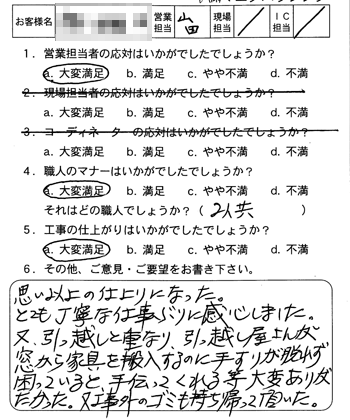 お客様名 営業担当 山田 現場担当 ／ ＩＣ担当 ／
１．営業担当者の応対はいかがでしたでしょうか？
a. 大変満足 b. 満足 c. やや不満 d. 不満
２．現場担当者の応対はいかがでしたでしょうか？
a. 大変満足 b. 満足 c. やや不満 d. 不満
３．コーディネーターの応対はいかがでしたでしょうか？
a. 大変満足 b. 満足 c. やや不満 d. 不満
４．職人のマナーはいかがでしたでしょうか？
a. 大変満足 b. 満足 c. やや不満 d. 不満
それはどの職人でしょうか？（ 2人共 ）
５．工事の仕上がりはいかがでしたでしょうか？
a. 大変満足 b. 満足 c. やや不満 d. 不満
６．その他、ご意見・ご要望をお書き下さい。
思い以上の仕上りになった。
とても丁寧な仕事ぶりに感心しました。
又、引っ越しと重なり、引っ越し屋さんが
窓から家具を搬入するのに手すりが脱れず
困っていると、手伝ってくれる等大変ありがた
たかった。又工事外のゴミも持ち帰って頂いた。